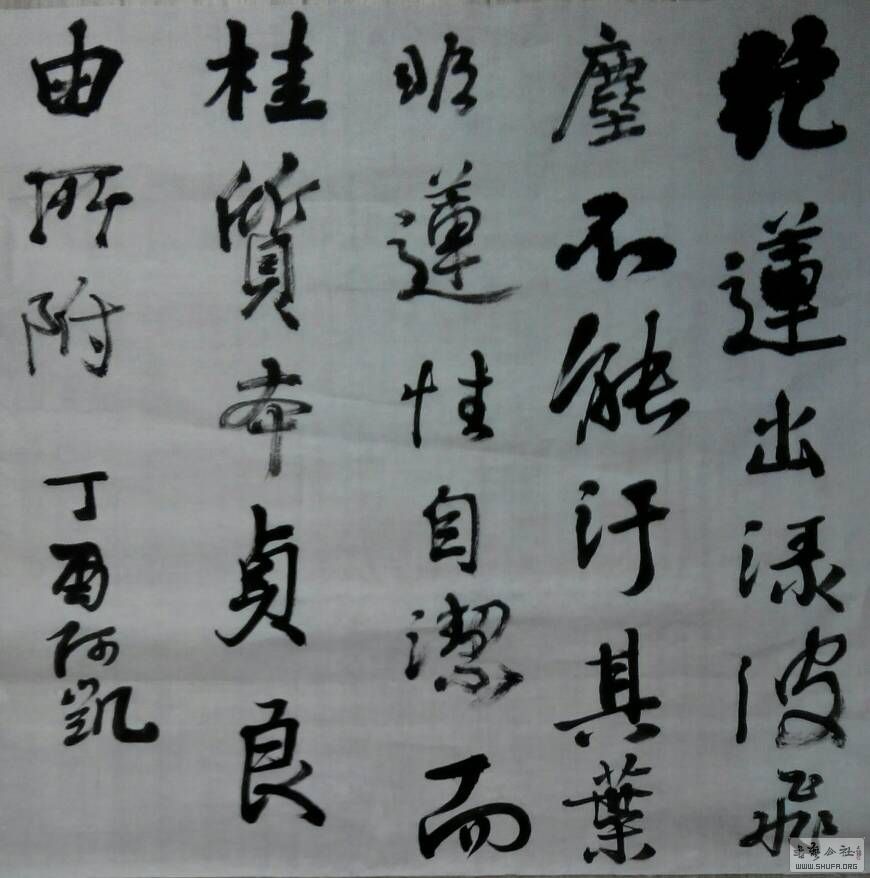 花蓮出渌波飛
塵不能汙其葉
非蓮性自潔而
桂質本貞良
由所附
丁酉阿凱
书艺公社
WWW.SHUFA.ORG